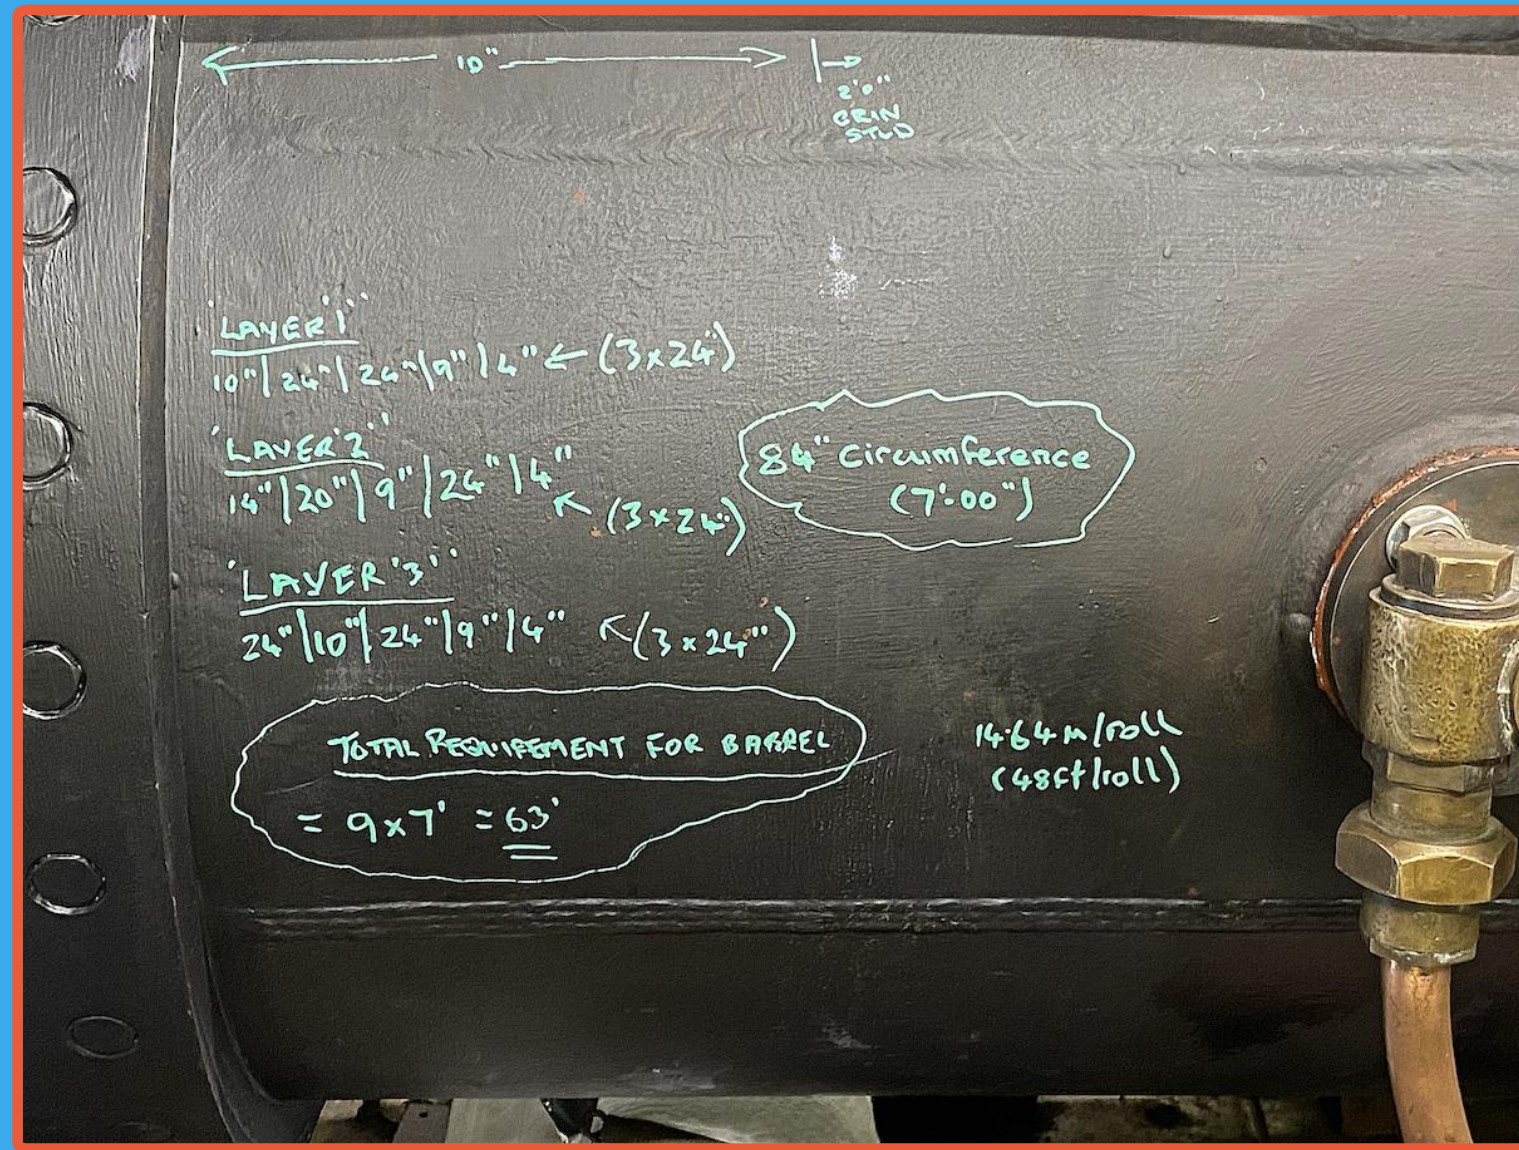 10"
2'0"
GRIN
STUD
'LAYER '1''
10"|24"|24"|9"|4" ← (3x24")
'LAYER '2''
14"|20"|9"|24"|4"
↖ (3x24")
84" circumference
(7'-00")
'LAYER '3''
24"|10"|24"|9"|4" ↖ (3x24")
TOTAL REQUIREMENT FOR BARREL
= 9x7' = 63'
14.64m/roll
(48ft/roll)